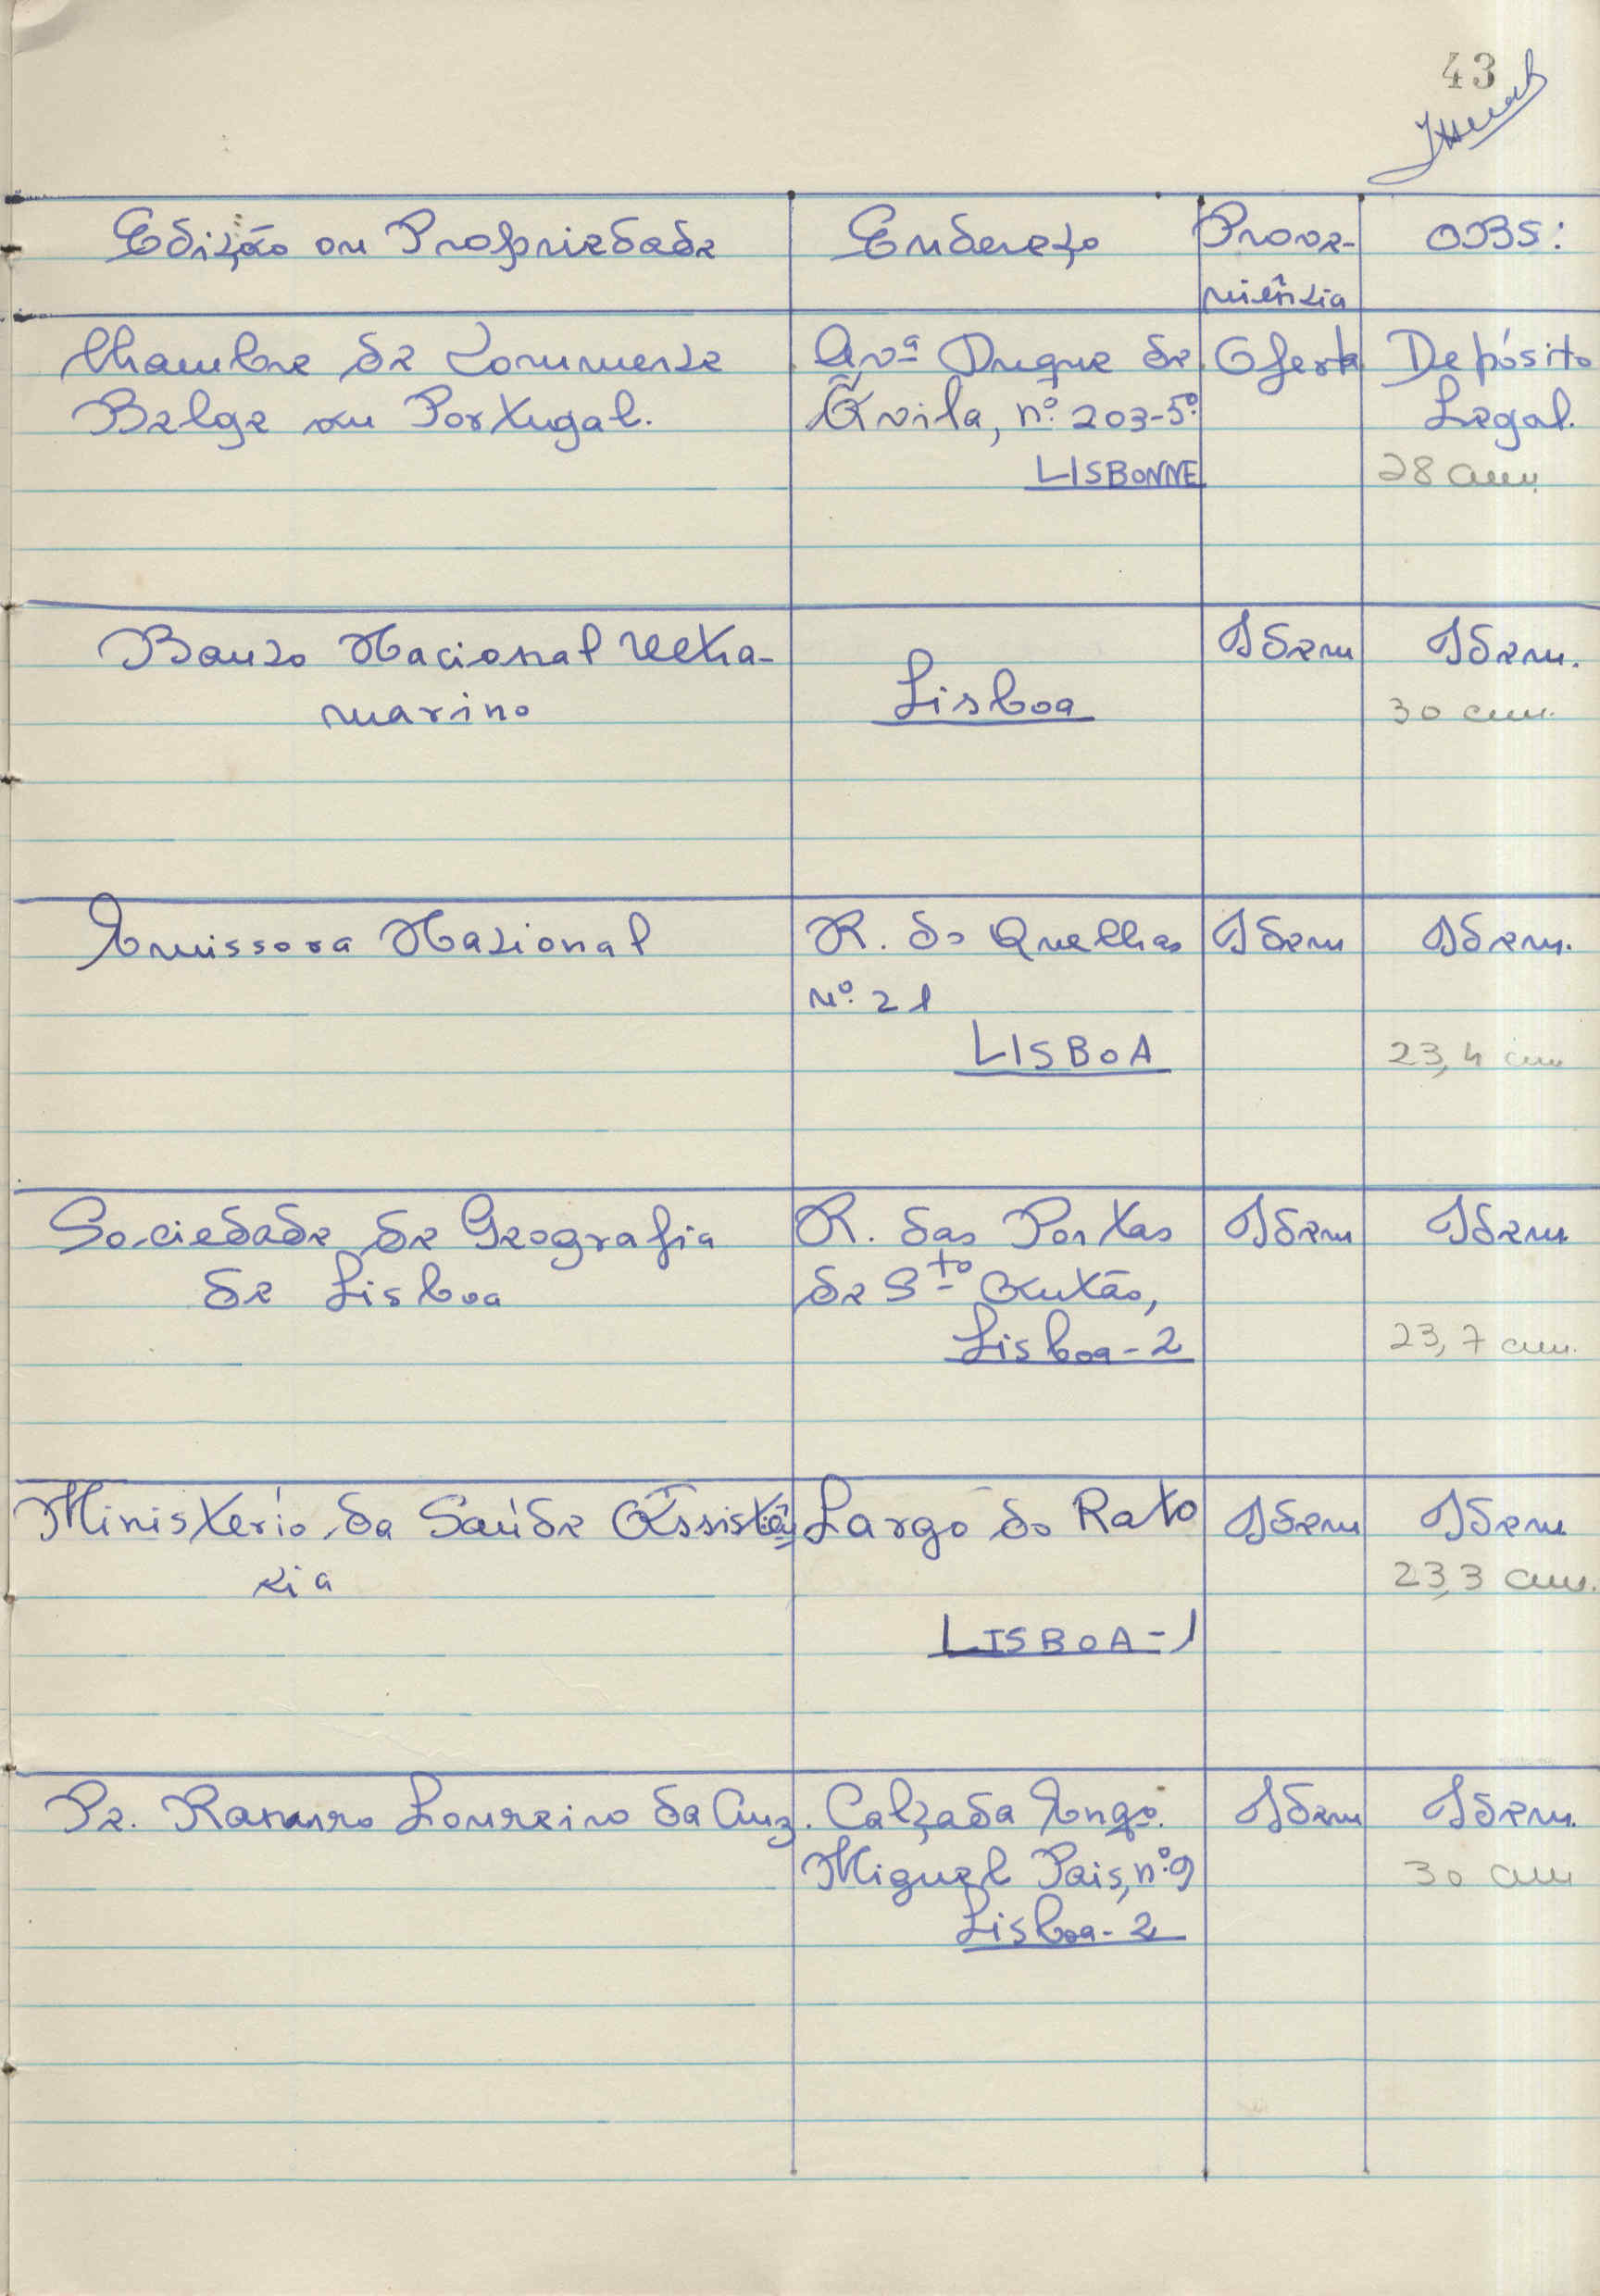 43
Edição ou Propriedade Endereço Prove- OBS:
niência
Chambre de Commerce Avª Duque de Oferta Depósito
Belge au Portugal. Ávila, nº. 203-5º. Legal.
LISBONNE 28 cm.
Banco Nacional Ultra- Idem Idem.
marino Lisboa 30 cm.
Emissora Nacional R. do Quelhas Idem Idem.
Nº. 21
LISBOA 23,4 cm
Sociedade de Geografia R. das Portas Idem Idem
de Lisboa de Sto Antão,
Lisboa-2 23,7 cm.
Ministério da Saúde Assistên Largo do Rato Idem Idem
cia 23,3 cm.
LISBOA-1
Pe. Ramiro Loureiro da Cruz. Calçada Engº. Idem Idem.
Miguel Pais, nº. 9 30 cm
Lisboa-2